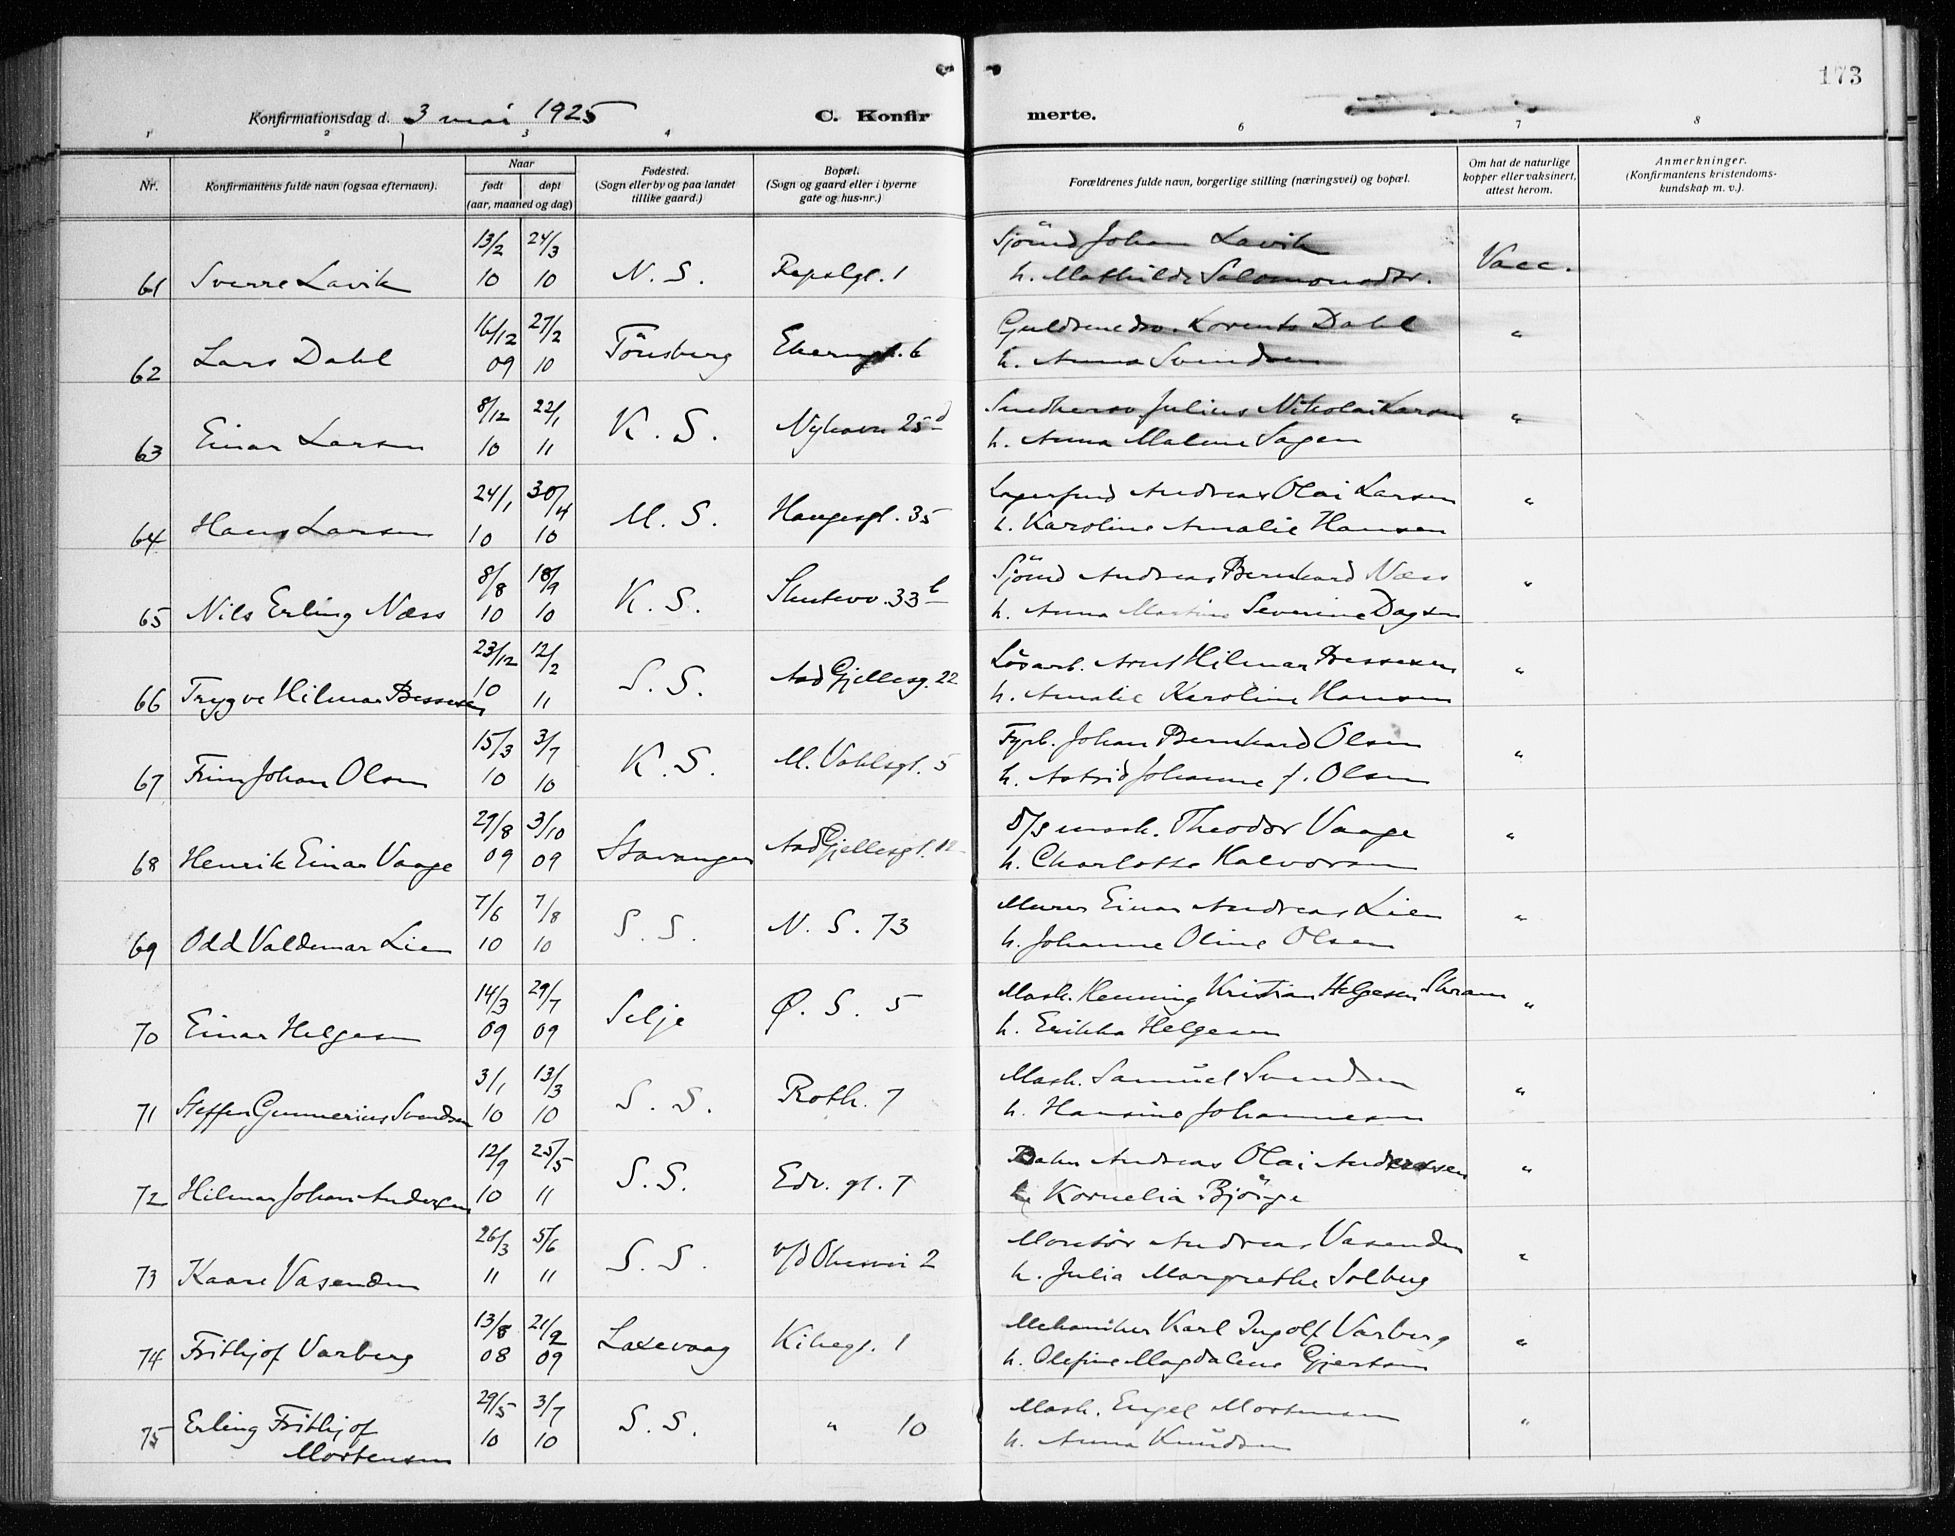 173
Konfirmationsdag d. 3 mai 1925 C. Konfirmerte.
1 2 3 4 6 7 8
Nr. Konfirmantens fulde navn (ogsaa efternavn). Naar født døpt (aar, maaned og dag) Fødested. (Sogn eller by og paa landet tillike gaard.) Bopæl. (Sogn og gaard eller i byerne gate og hus-nr.) Forældrenes fulde navn, borgerlige stilling (næringsvei) og bopæl. Om hat de naturlige kopper eller vaksinert, attest herom. Anmerkninger. (Konfirmantens kristendomskundskap m. v.).
13/2 24/3 Sjömd Johan Lavik
61 Sverre Lavik 10 10 N. S. Repslgt. 1 h. Mathilde Salomonsdtr. Vacc.
16/12 27/2 Guldsmedsv. Lorents Dahl
62 Lars Dahl 09 10 Tönsberg 6 h. Anna Svendsen "
8/12 22/1 Smedhersv Julius Nikolai Larsen
63 Einar Larsen 10 11 K. S. Nyhavn 25 d h. Anna Malene Sagen "
24/1 30/4 Andreas Olai Larsen
64 Hans Larsen 10 10 M. S. Haugesgt. 35 h. Karoline Amalie Hansen "
8/8 18/9 Sjömd Andreas Bernhard Næss
65 Nils Erling Næss 10 10 K. S. Skutevv. 33 b h. Anna Martine Severine Dagsen "
23/12 12/2 Lösarb. Arnt Hilmar Bessesen
66 Trygve Hilmar Bessesen 10 11 S. S. Aad Gjellesg. 22 h. Amalie Karoline Hansen "
15/3 3/7 Fyrb. Johan Bernhard Olsen
67 Johan Olsen 10 10 K. S. M. Vahlsgt. 5 h. Astrid Johanne f. Olsen "
29/8 3/10 D/S mask. Theodor Vaage
68 Henrik Einar Vaage 09 09 Stavanger Aad Gjellesgt. 12 h. Charlotte Halvorsen "
7/6 7/8 Murer Einar Andreas Lien
69 Odd Valdemar Lien 10 10 S. S. N. S. 73 h. Johanne Oline Olsen "
14/3 29/7 Mask. Henning Kristian Helgesen Skram
70 Einar Helgesen 09 09 Selje Ø. S. 5 h. Erikka Helgesen "
3/1 13/3 Mask. Samüel Svendsen
71 Steffen Gunnerius Svendsen 10 10 S. S. Roth. 7 h. Hansine Johannesen "
12/9 25/5 Andreas Olai Andersen
72 Hilmar Johan Andersen 10 11 S. S. Edv. gt. 7 h. Kornelia Bjórge "
26/3 5/6 Montör Andreas Vasenden
73 Kaare Vasenden 11 11 S. S. v/d 2 h. Julia Margrethe Solberg "
13/8 21/2 Mekaniker Karl Ingolf Varberg
74 Frithjof Varberg 08 09 Laxevaag Kikegt. 1 h. Olefine Magdalene Gjertsen "
29/5 3/7 Mask. Engel Mortensen
75 Erling Frithjof Mortensen 10 10 S. S. " 10 h. Anna Knüdsen "